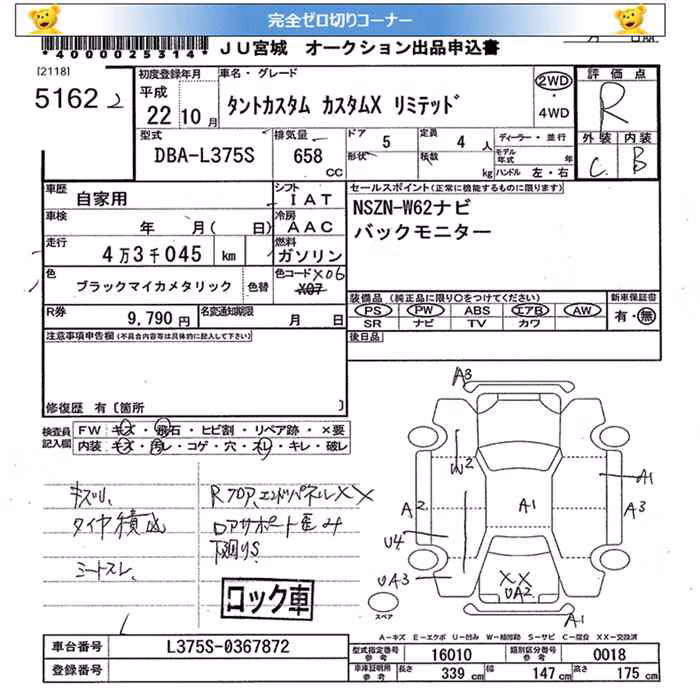 完全ゼロ切りコーナー
*4000025314* JU宮城 オークション出品申込書
[2118]
5162 2
初度登録年月
平成
22年10月
車名・グレード
タントカスタム カスタムX リミテッド
2WD
・
4WD
評価点
R
型式
DBA-L375S
排気量
658
CC
ドア
5
形状
定員
4 人
積載
kg
ディーラー・並行
モデル年式 年
ハンドル 左・右
外装 内装
C B
車歴
自家用
シフト
IAT
車検
年 月( 日)
冷房
AAC
走行
4万3千045 km
燃料
ガソリン
色
ブラックマイカメタリック
色替
色コード X06
X07
R券
9,790円
名変通知期限
月 日
セールスポイント(正常に機能するものに限ります)
NSZN-W62ナビ
バックモニター
装備品(純正品に限り○をつけてください)
PS PW ABS エアB AW
SR ナビ TV カワ
新車保証書
有・無
後日品
注意事項申告欄(不具合内容等は具体的に記入して下さい)
修復歴 有〔箇所 〕
検査員
記入欄
FW キズ・飛石・ヒビ割・リペア跡・×要
内装 キズ・汚レ・コゲ・穴・スレ・キレ・破レ
キズリ、
タイヤ積込
シートスレ、
Rフロア、エンドパネルXX
ロアサポート歪み
下廻りS
ロック車
A3
W2
A1
A2
A1
A3
U4
UA3
XX
UA2
A1
スペア
A-キズ E-エクボ U-凹み W-補修跡 S-サビ C-腐食 XX-交換済
車台番号
L375S-0367872
登録番号
型式指定番号
参考
16010
類別区分番号
参考
0018
車体証明用
参考
長さ
339 cm
幅
147 cm
高さ
175 cm